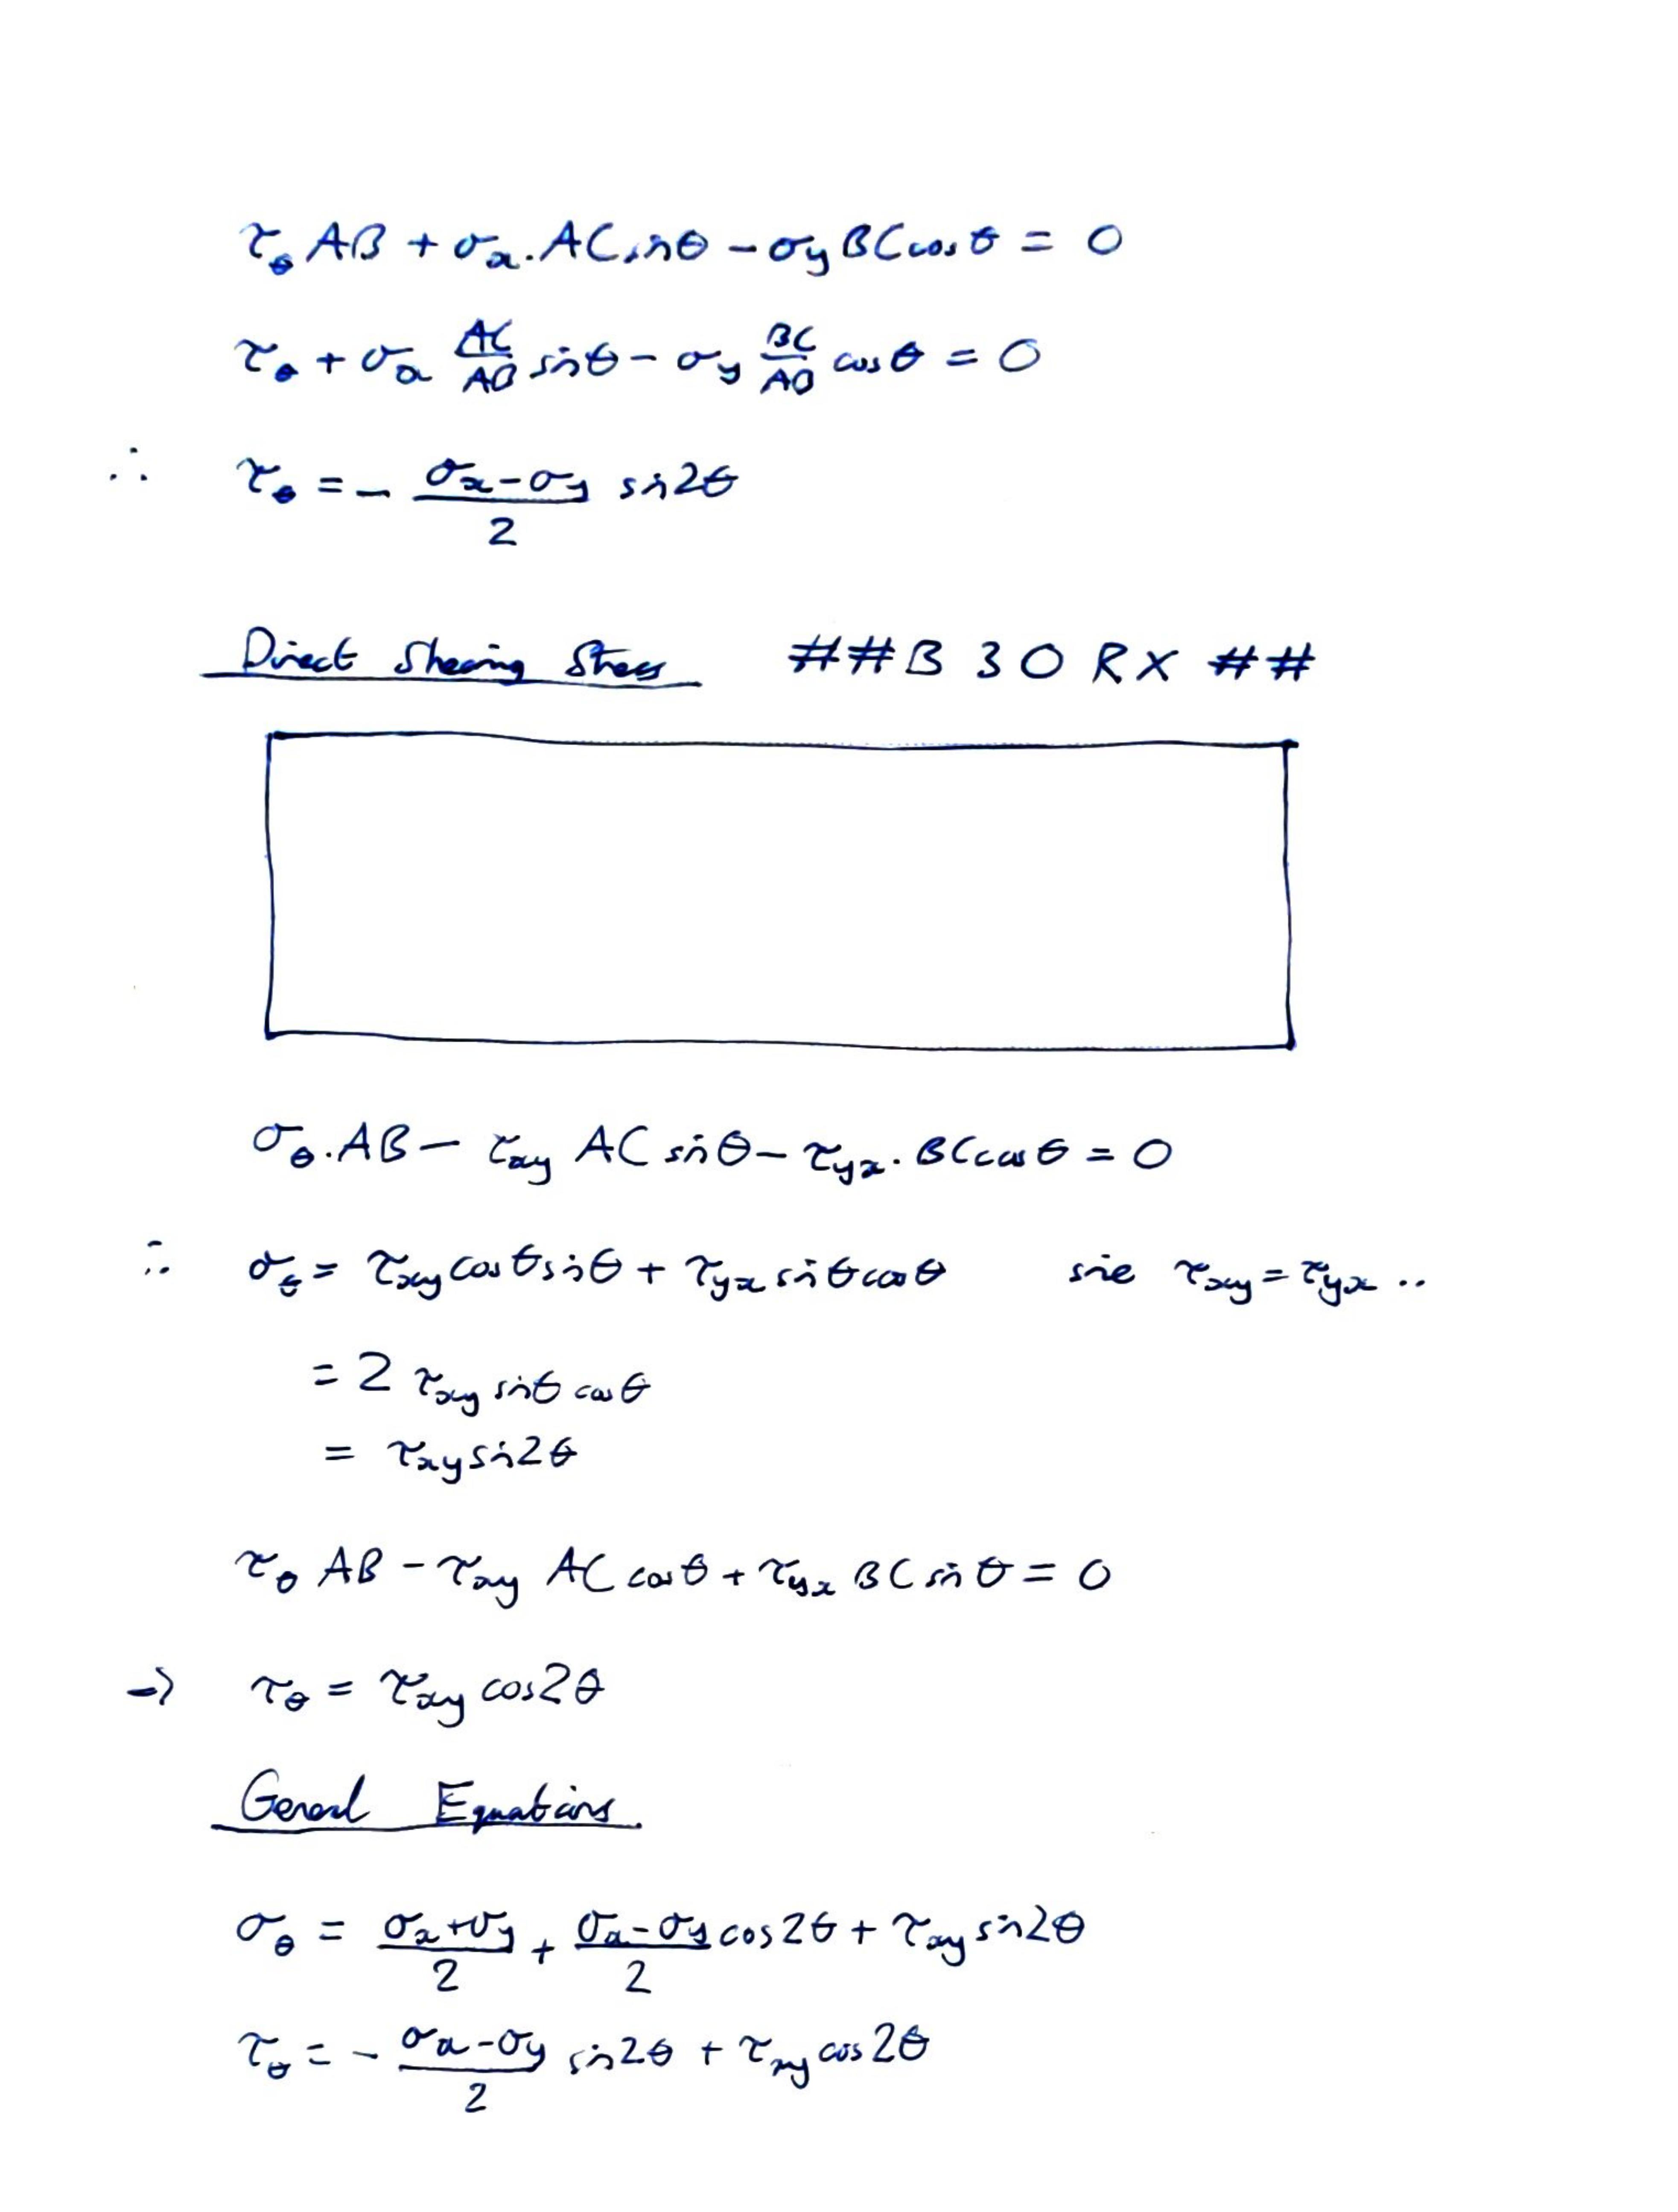 τ_θ AB + σ_x . AC sinθ − σ_y BC cosθ = 0
τ_θ + σ_x AC/AB sinθ − σ_y BC/AB cosθ = 0
∴ τ_θ = − (σ_x − σ_y)/2 sin2θ
Direct Shearing Stress ##B30RX##
σ_θ . AB − τ_xy AC sinθ − τ_yx . BC cosθ = 0
∴ σ_θ = τ_xy cosθ sinθ + τ_yx sinθ cosθ since τ_xy = τ_yx ..
= 2 τ_xy sinθ cosθ
= τ_xy sin2θ
τ_θ AB − τ_xy AC cosθ + τ_yx BC sinθ = 0
⇒ τ_θ = τ_xy cos2θ
General Equations
σ_θ = (σ_x + σ_y)/2 + (σ_x − σ_y)/2 cos2θ + τ_xy sin2θ
τ_θ = − (σ_x − σ_y)/2 sin2θ + τ_xy cos2θ